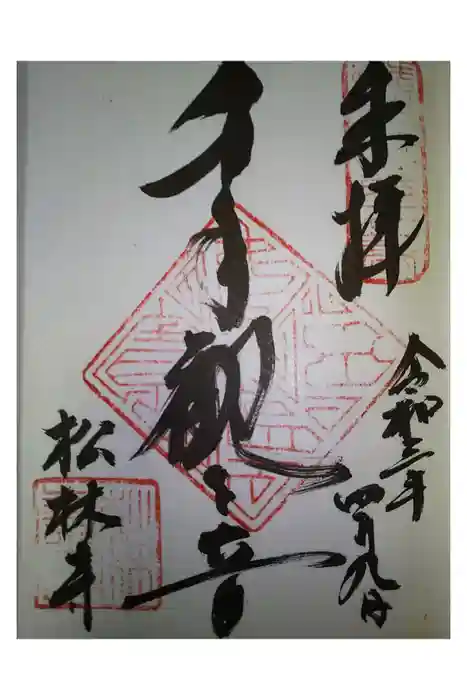 奉拝
令和三年
四月九日
千手観世音
松林寺